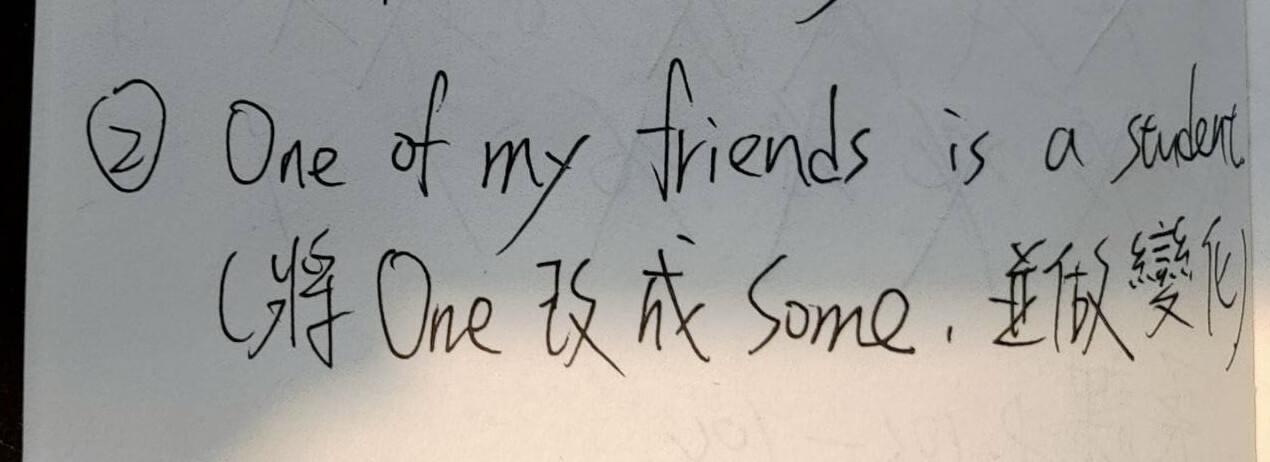 ② One of my friends is a student.
(將 One 改成 Some, 並做變化)